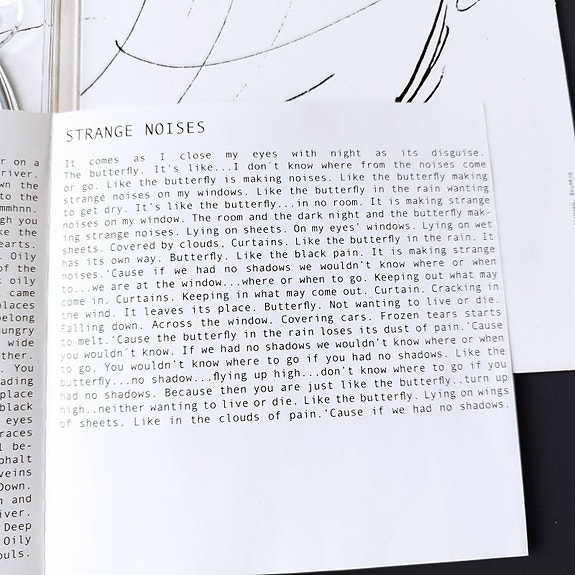 r on a
river.
wn the
to the
mmhnn.
gh you
ke the
earts.
. Oily
of the
t oily
came
places
belong
hungry
wide
ther.
. You
ading
place
black
eyes
races
l be-
phalt
veins
Down.
n and
iver.
Deep
Oily
ouls.
STRANGE NOISES
It comes as I close my eyes with night as its disguise.
The butterfly. It's like...I don´t know where from the noises come
or go. Like the butterfly is making noises. Like the butterfly making
strange noises on my windows. Like the butterfly in the rain wanting
to get dry. It's like the butterfly...in no room. It is making strange
noises on my window. The room and the dark night and the butterfly mak-
ing strange noises. Lying on sheets. On my eyes' windows. Lying on wet
sheets. Covered by clouds. Curtains. Like the butterfly in the rain. It
has its own way. Butterfly. Like the black pain. It is making strange
noises.'Cause if we had no shadows we wouldn't know where or when
to...we are at the window...where or when to go. Keeping out what may
come in. Curtains. Keeping in what may come out. Curtain. Cracking in
the wind. It leaves its place. Butterfly. Not wanting to live or die.
Falling down. Across the window. Covering cars. Frozen tears starts
to melt.'Cause the butterfly in the rain loses its dust of pain.'Cause
you wouldn´t know. If we had no shadows we wouldn't know where or when
to go. You wouldn't know where to go if you had no shadows. Like the
butterfly...no shadow...flying up high...don't know where to go if you
had no shadows. Because then you are just like the butterfly..turn up
high..neither wanting to live or die. Like the butterfly. Lying on wings
of sheets. Like in the clouds of pain.'Cause if we had no shadows.